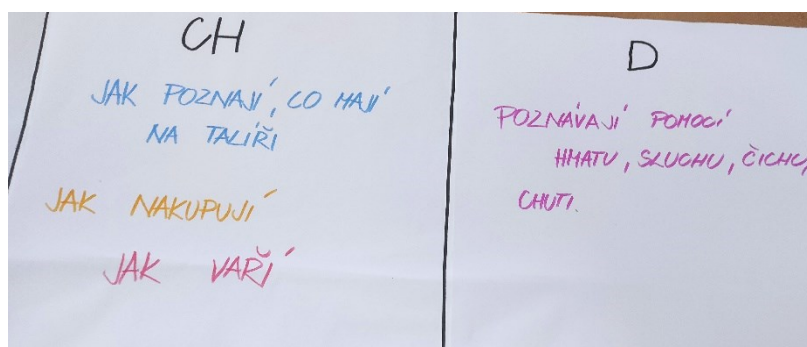 CH
JAK POZNAJÍ, CO MAJÍ
NA TALÍŘI
JAK NAKUPUJÍ
JAK VAŘÍ
D
POZNÁVAJÍ POMOCÍ
HMATU, SLUCHU, ČICHU,
CHUTI.